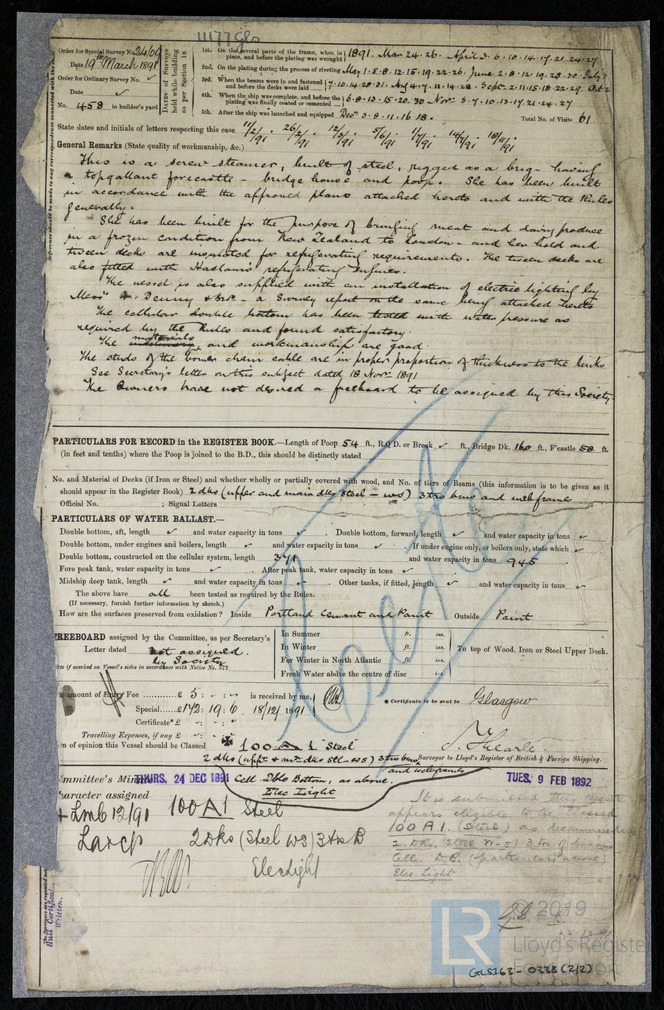 Order for Special Survey No.
Date 19th March 1891
Order for Ordinary Survey No. ✓
Date ✓
No. 458 in builder's yard
Dates of Surveys held while building as per Section 18.
1st. On the several parts of the frame, when in place, and before the plating was wrought 1891. Mar 24. 26. April 3. 6. 10. 14. 17. 21. 24. 27
2nd. On the plating during the process of riveting May 1. 5. 8. 12. 15. 19. 22. 26. June 2. 8. 12. 19. 23. 30. July
3rd. When the beams were in and fastened and before the decks were laid
4th. When the ship was complete, and before the plating was finally coated or cemented 6. 8. 13. 15. 20. 30 Nov. 3. 7. 10. 13. 17. 21. 24. 27
5th. After the ship was launched and equipped Decr 3. 8. 11. 16. 18. Total No. of Visits 61
State dates and initials of letters respecting this case
General Remarks (State quality of workmanship, &c.)
This is a screw steamer, built of steel, rigged as a brig - having
a topgallant forecastle - bridge house and poop. She has been built
in accordance with the approved plans attached hereto and with the Rules
generally.
She has been built for the purpose of bringing meat and dairy produce
in a frozen condition from New Zealand to London - and her hold and
tween decks are insulated for refrigerating requirements. The tween decks are
also fitted with Haslam's refrigerating Engines.
The vessel is also supplied with an installation of electric lighting by
Messrs Denny & Bro. - a Survey report on the same being attached hereto
The cellular double bottom has been tested with water pressure as
required by the Rules and found satisfactory.
The materials and workmanship are good
The studs of the bower chain cable are in proper proportion of thickness to the links
See Secretary's letter on this subject dated 18 Novr. 1891
The Owners have not desired a freeboard to be assigned by this Society
PARTICULARS FOR RECORD in the REGISTER BOOK.—Length of Poop 54 ft., R.Q.D. or Break ✓ ft., Bridge Dk. 160 ft., F'castle 58 ft.
(in feet and tenths) where the Poop is joined to the B.D., this should be distinctly stated
No. and Material of Decks (if Iron or Steel) and whether wholly or partially covered with wood, and No. of tiers of Beams (this information is to be given as it
should appear in the Register Book) 2 dks (upper and main dks Steel - ws) 3 trs bms and web frames
Official No. ; Signal Letters
PARTICULARS OF WATER BALLAST.—
Double bottom, aft, length ✓ and water capacity in tons ✓. Double bottom, forward, length ✓ and water capacity in tons ✓
Double bottom, under engines and boilers, length ✓ and water capacity in tons ✓. If under engine only, or boilers only, state which ✓
Double bottom, constructed on the cellular system, length 371 and water capacity in tons 945
Fore peak tank, water capacity in tons ✓. After peak tank, water capacity in tons ✓
Midship deep tank, length ✓ and water capacity in tons ✓. Other tanks, if fitted, length ✓ and water capacity in tons ✓
The above have all been tested as required by the Rules.
(If necessary, furnish further information by sketch.)
How are the surfaces preserved from oxidation? Inside Portland Cement and Paint Outside Paint
FREEBOARD assigned by the Committee, as per Secretary's
Letter dated not assigned.
by Society
In Summer ft. ins.
In Winter ft. ins.
For Winter in North Atlantic ft. ins.
Fresh Water above the centre of disc ft. ins.
To top of Wood, Iron or Steel Upper Deck.
amount of Entry Fee £ 5 : - : - is received by me,
Special £ 142 : 19 : 6 18/12/1891
Certificate* £ :
Travelling Expenses, if any £
* Certificate to be sent to Glasgow
of opinion this Vessel should be Classed 100 A 1 Steel
2 dks (uppr & mn dks Stl - ws) 3 trs bms
and web frames
Surveyor to Lloyd's Register of British & Foreign Shipping.
Committee's Minute THURS. 24 DEC 1891
Cell Dble Bottom, as above.
Elec Light
TUES. 9 FEB 1892
Character assigned
+ Lmb 12/91 100A1 Steel
LaCP 2 Dks (Steel WS) 3 trs B
Elec Light
It is submitted this vessel
appears eligible to be classed
100 A 1. (Steel) as recommended
2. Dks. (Steel W-S) 3 trs of beams
Cell. D.B. (particulars above)
Elec. Light
Hull Certificate Written.
© 2019
LR Lloyd's Register
Foundation
GLS163-0338 (2/2)